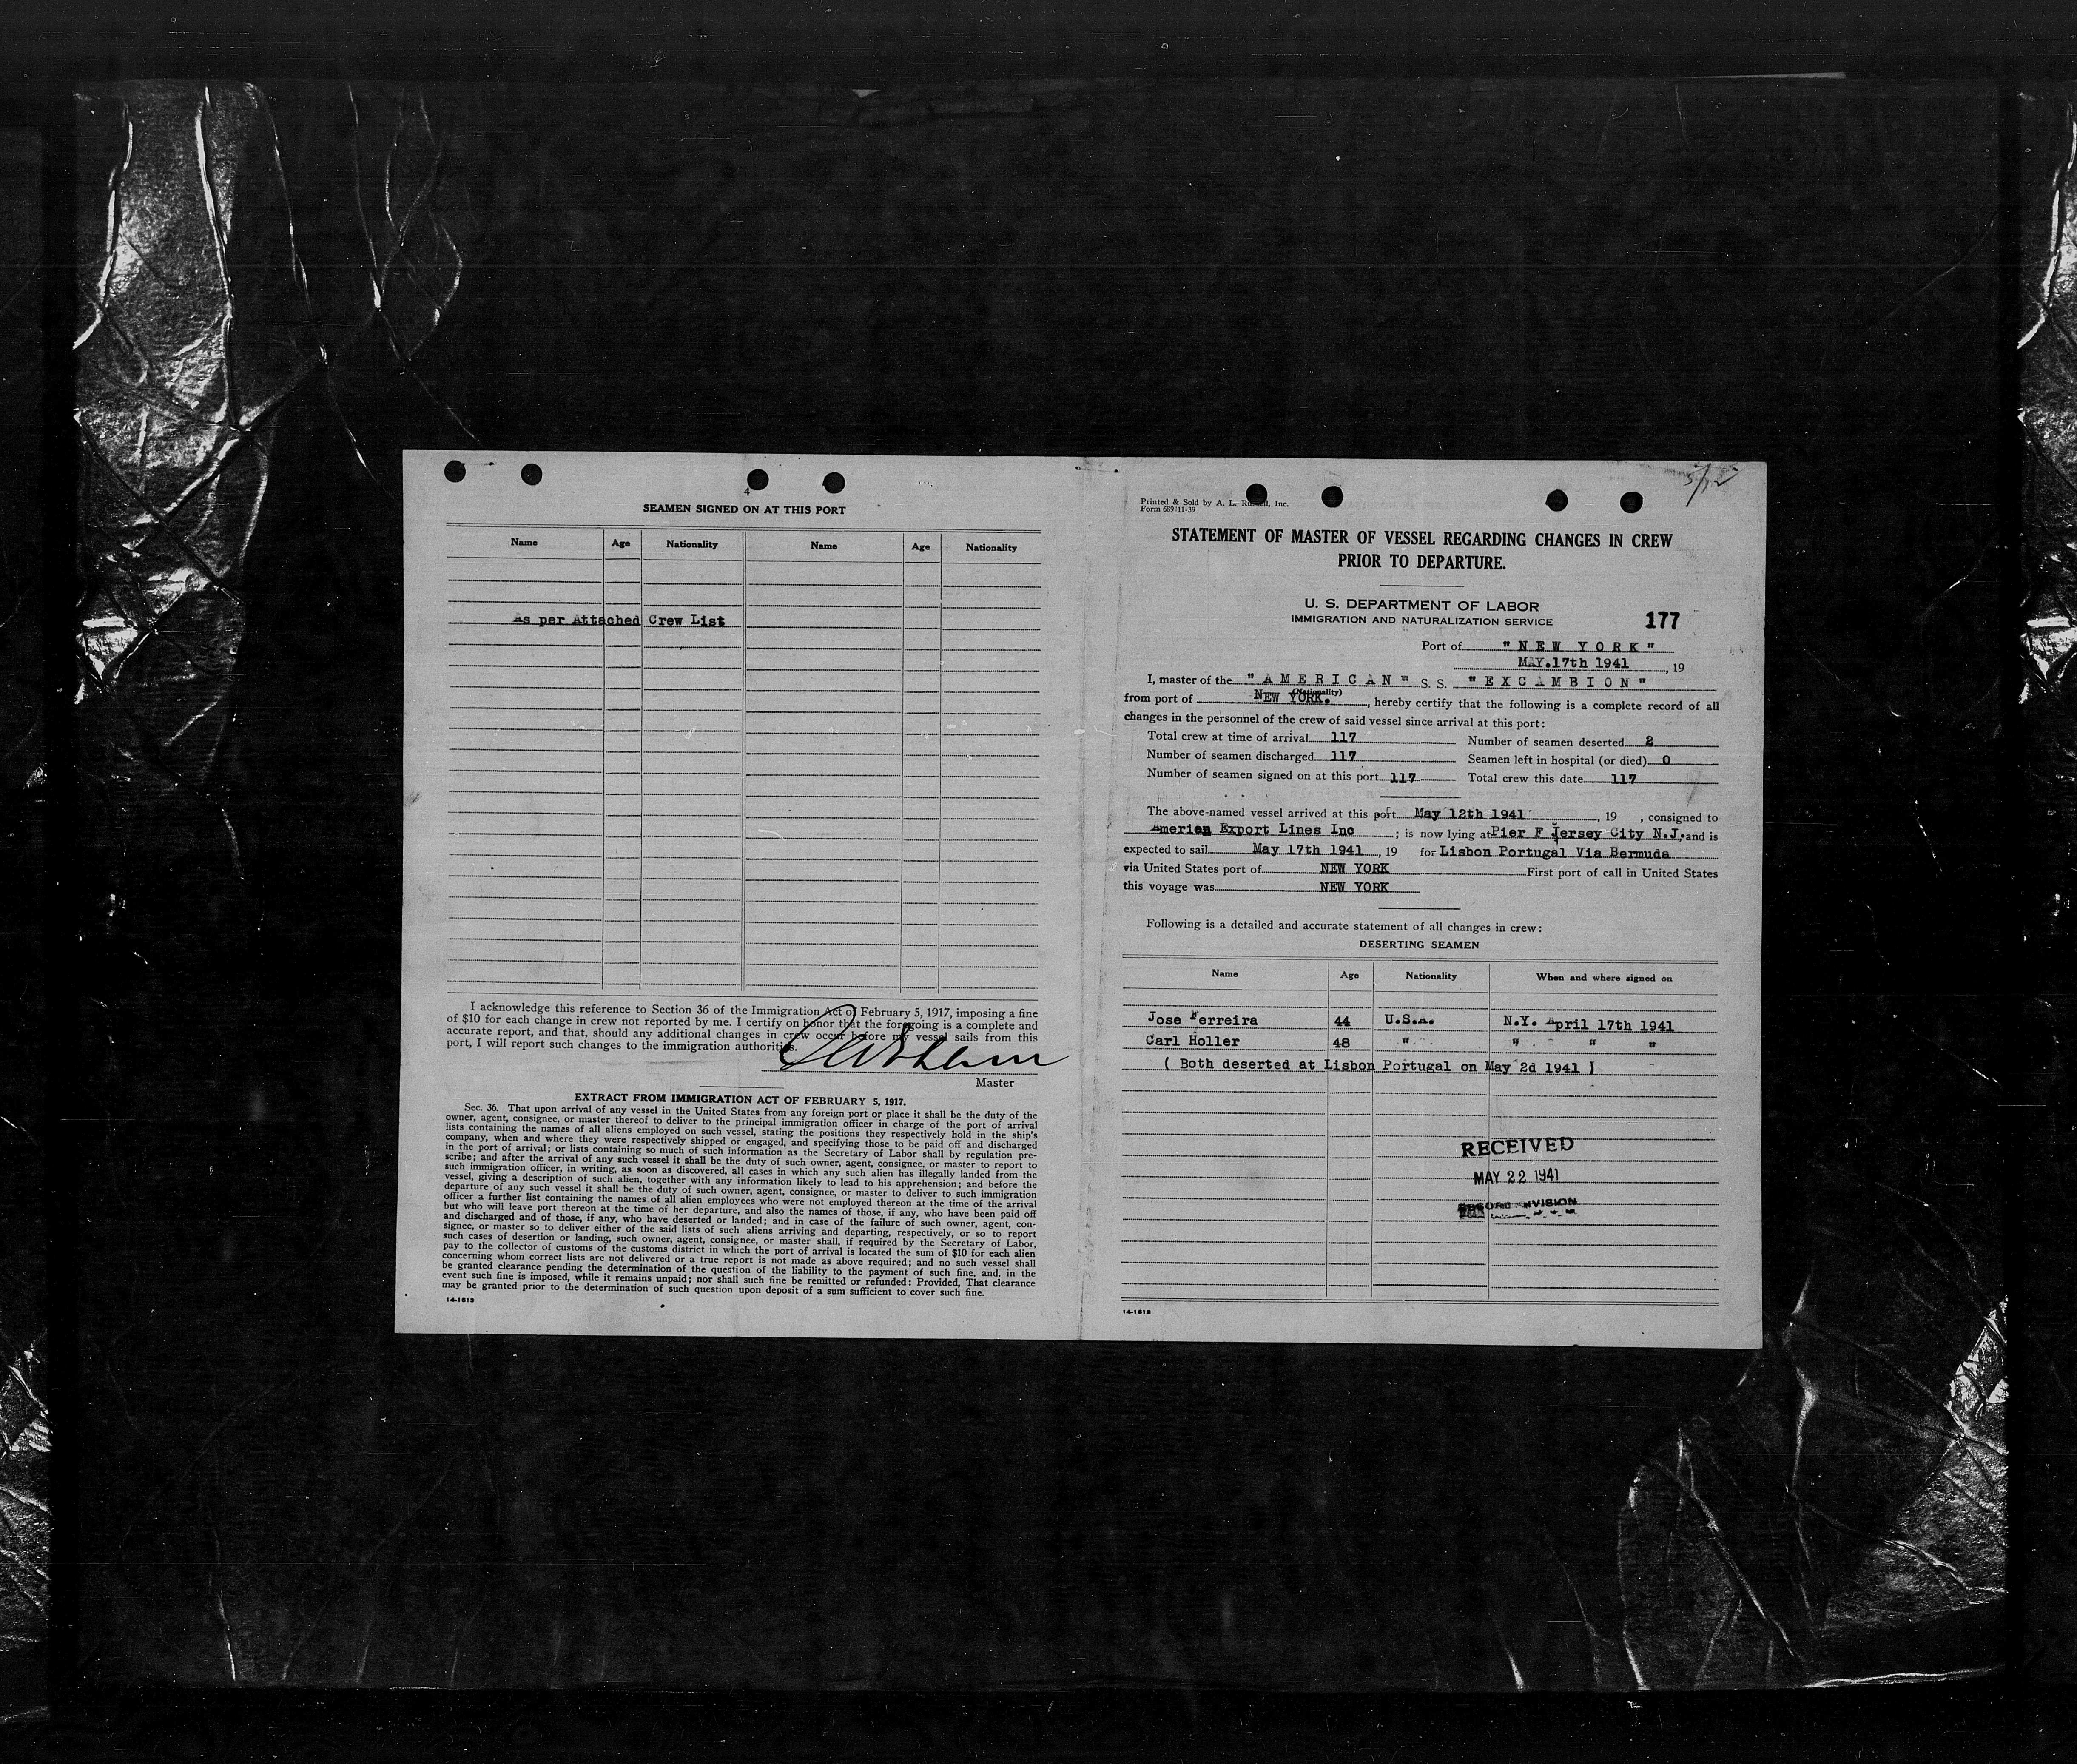 4
SEAMEN SIGNED ON AT THIS PORT
Name Age Nationality Name Age Nationality
As per Attached Crew List
I acknowledge this reference to Section 36 of the Immigration Act of February 5, 1917, imposing a fine
of $10 for each change in crew not reported by me. I certify on honor that the foregoing is a complete and
accurate report, and that, should any additional changes in crew occur before my vessel sails from this
port, I will report such changes to the immigration authorities.
Master
EXTRACT FROM IMMIGRATION ACT OF FEBRUARY 5, 1917.
Sec. 36. That upon arrival of any vessel in the United States from any foreign port or place it shall be the duty of the
owner, agent, consignee, or master thereof to deliver to the principal immigration officer in charge of the port of arrival
lists containing the names of all aliens employed on such vessel, stating the positions they respectively hold in the ship's
company, when and where they were respectively shipped or engaged, and specifying those to be paid off and discharged
in the port of arrival; or lists containing so much of such information as the Secretary of Labor shall by regulation pre-
scribe; and after the arrival of any such vessel it shall be the duty of such owner, agent, consignee, or master to report to
such immigration officer, in writing, as soon as discovered, all cases in which any such alien has illegally landed from the
vessel, giving a description of such alien, together with any information likely to lead to his apprehension; and before the
departure of any such vessel it shall be the duty of such owner, agent, consignee, or master to deliver to such immigration
officer a further list containing the names of all alien employees who were not employed thereon at the time of the arrival
but who will leave port thereon at the time of her departure, and also the names of those, if any, who have been paid off
and discharged and of those, if any, who have deserted or landed; and in case of the failure of such owner, agent, con-
signee, or master so to deliver either of the said lists of such aliens arriving and departing, respectively, or so to report
such cases of desertion or landing, such owner, agent, consignee, or master shall, if required by the Secretary of Labor,
pay to the collector of customs of the customs district in which the port of arrival is located the sum of $10 for each alien
concerning whom correct lists are not delivered or a true report is not made as above required; and no such vessel shall
be granted clearance pending the determination of the question of the liability to the payment of such fine, and, in the
event such fine is imposed, while it remains unpaid; nor shall such fine be remitted or refunded: Provided, That clearance
may be granted prior to the determination of such question upon deposit of a sum sufficient to cover such fine.
14-1613
5/12
Printed & Sold by A. L. Russell, Inc.
Form 689 11-39
STATEMENT OF MASTER OF VESSEL REGARDING CHANGES IN CREW
PRIOR TO DEPARTURE.
U. S. DEPARTMENT OF LABOR
IMMIGRATION AND NATURALIZATION SERVICE
177
Port of "NEW YORK"
MAY.17th 1941, 19
I, master of the "AMERICAN" S. S. "EXCAMBION"
(Nationality)
from port of NEW YORK., hereby certify that the following is a complete record of all
changes in the personnel of the crew of said vessel since arrival at this port:
Total crew at time of arrival 117 Number of seamen deserted 2
Number of seamen discharged 117 Seamen left in hospital (or died) 0
Number of seamen signed on at this port 117 Total crew this date 117
The above-named vessel arrived at this port May 12th 1941, 19 , consigned to
Amerien Export Lines Inc ; is now lying at Pier F Jersey City N.J. and is
expected to sail May 17th 1941, 19 for Lisbon Portugal Via Bermuda
via United States port of NEW YORK First port of call in United States
this voyage was NEW YORK
Following is a detailed and accurate statement of all changes in crew:
DESERTING SEAMEN
Name Age Nationality When and where signed on
Jose Ferreira 44 U.S.A. N.Y. April 17th 1941
Carl Holler 48 " " " "
( Both deserted at Lisbon Portugal on May 2d 1941 )
RECEIVED
MAY 22 1941
RECORD DIVISION
14-1613